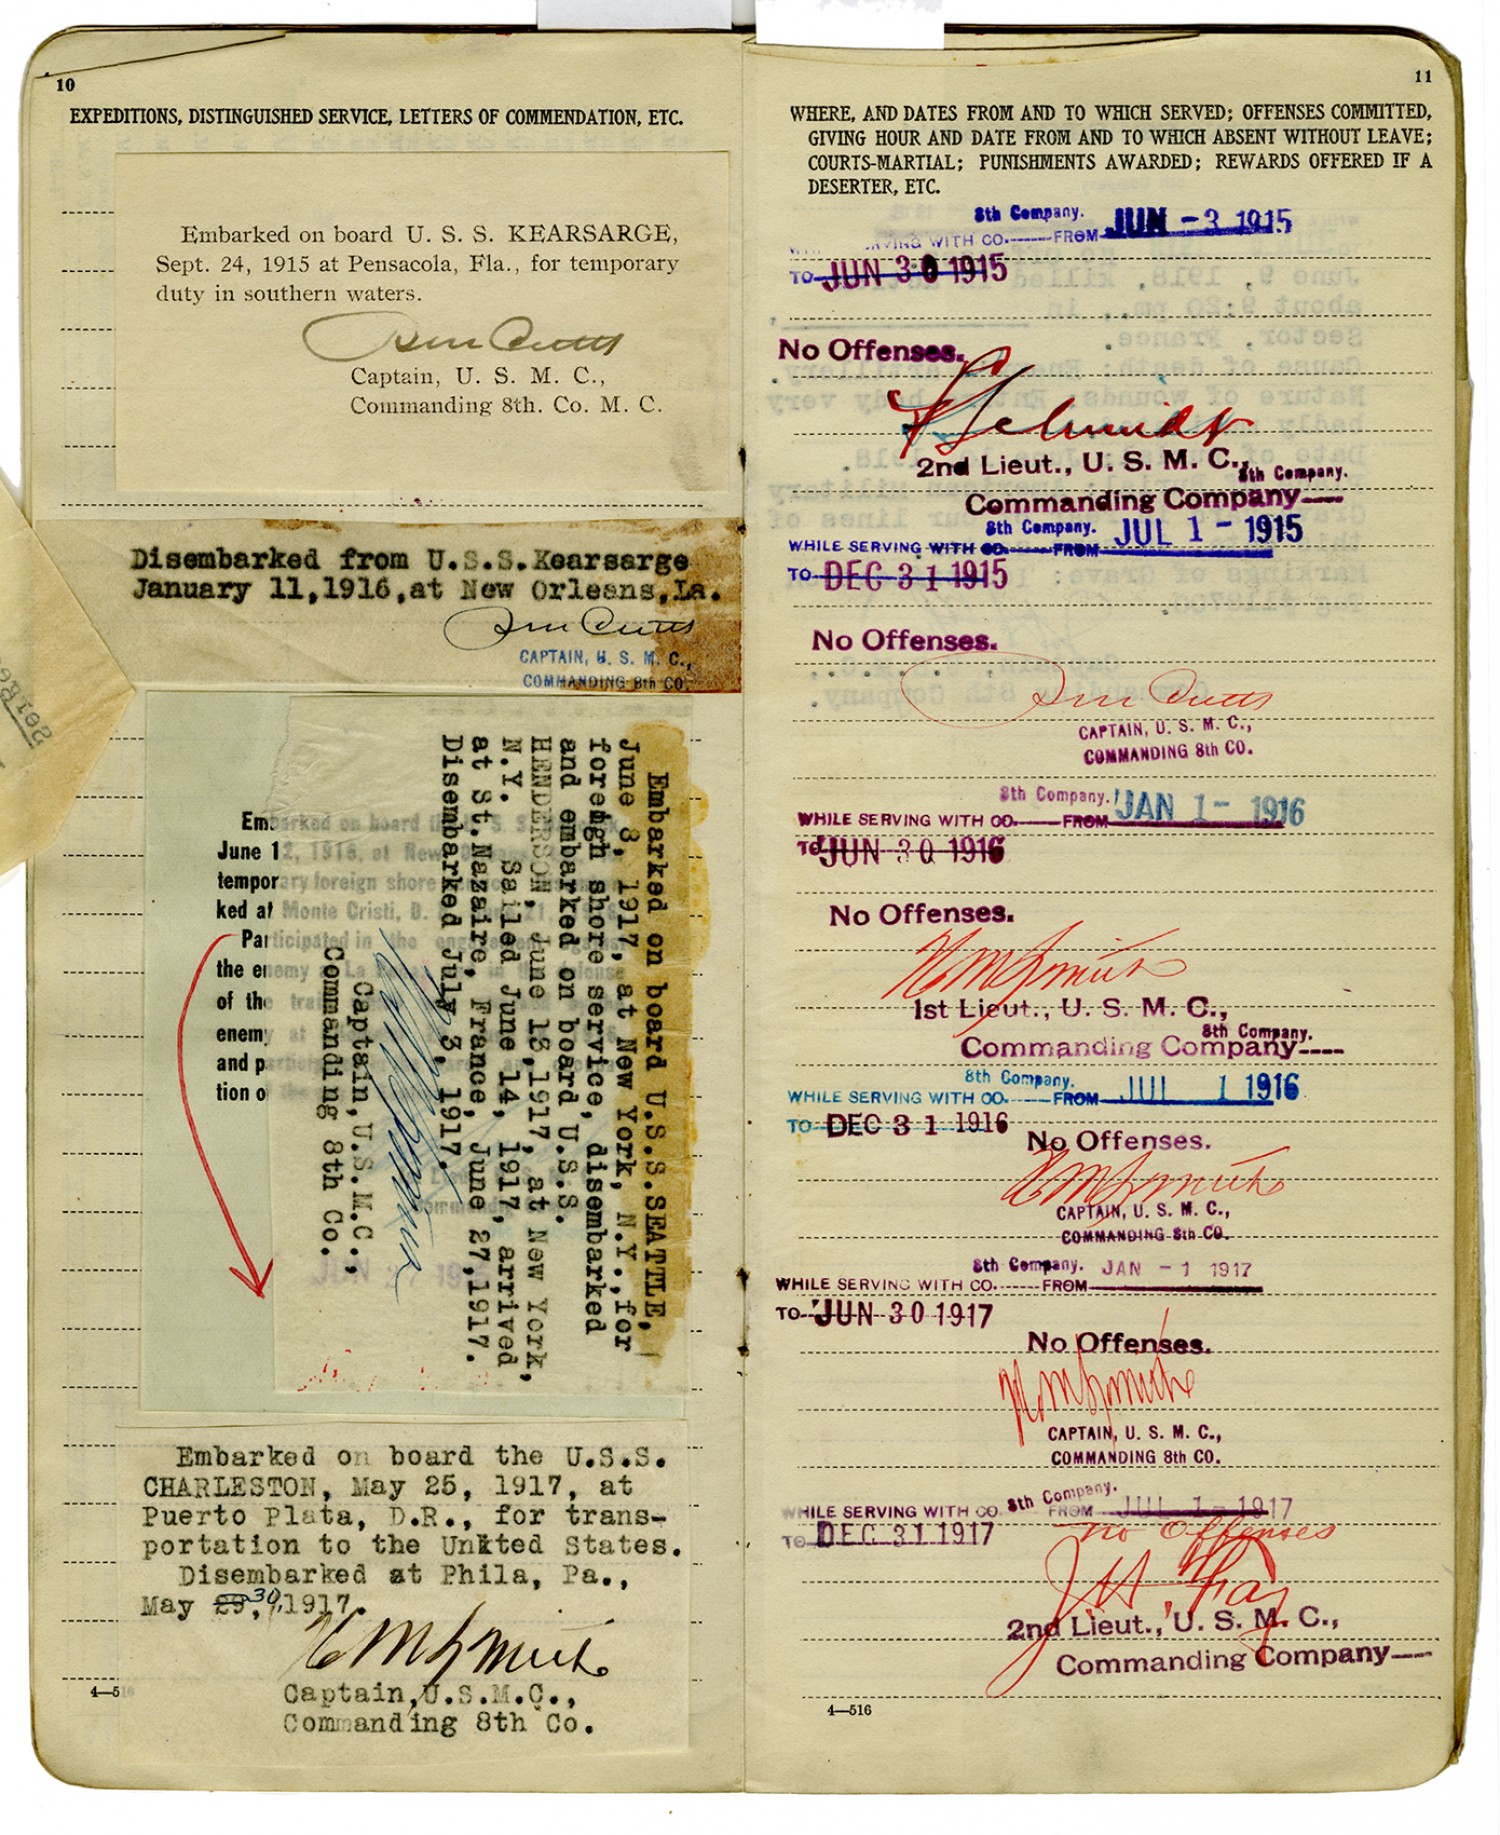 10
EXPEDITIONS, DISTINGUISHED SERVICE, LETTERS OF COMMENDATION, ETC.
Embarked on board U. S. S. KEARSARGE,
Sept. 24, 1915 at Pensacola, Fla., for temporary
duty in southern waters.
Captain, U. S. M. C.,
Commanding 8th. Co. M. C.
Disembarked from U.S.S.Kearsarge
January 11,1916,at New Orleans,La.
CAPTAIN, U. S. M. C.,
COMMANDING 8th CO.
Embarked on board
June 12, 1916, at New
temporary foreign shore
ked at Monte Cristi, D.
Participated in the
the enemy
of the
enemy
and
tion o
Embarked on board U.S.S.SEATTLE,
June 8, 1917, at New York, N.Y.,for
foreign shore service, disembarked
and embarked on board U.S.S.
HENDERSON, June 13,1917, at New York,
N.Y. Sailed June 14, 1917, arrived
at St.Nazaire, France, June 27,1917.
Disembarked July 3, 1917.
Captain,U.S.M.C.,
Commanding 8th Co.
Embarked on board the U.S.S.
CHARLESTON, May 25, 1917, at
Puerto Plata, D.R., for trans-
portation to the United States.
Disembarked at Phila, Pa.,
May 29, 30, 1917.
Captain,U.S.M.C.,
Commanding 8th Co.
4—5
11
WHERE, AND DATES FROM AND TO WHICH SERVED; OFFENSES COMMITTED,
GIVING HOUR AND DATE FROM AND TO WHICH ABSENT WITHOUT LEAVE;
COURTS-MARTIAL; PUNISHMENTS AWARDED; REWARDS OFFERED IF A
DESERTER, ETC.
8th Company. JUN -3 1915
SERVING WITH CO.------FROM
TO JUN 30 1915
No Offenses.
Schmidt
2nd Lieut., U. S. M. C.,
8th Company.
Commanding Company
8th Company. JUL 1 - 1915
WHILE SERVING WITH CO.------FROM
TO DEC 31 1915
No Offenses.
CAPTAIN, U. S. M. C.,
COMMANDING 8th CO.
8th Company. JAN 1 - 1916
WHILE SERVING WITH CO.------FROM
TO JUN 30 1916
No Offenses.
H M Smith
1st Lieut., U. S. M. C.,
8th Company.
Commanding Company----
8th Company. JUL 1 1916
WHILE SERVING WITH CO.------FROM
TO DEC 31 1916
No Offenses.
H M Smith
CAPTAIN, U. S. M. C.,
COMMANDING 8th CO.
8th Company. JAN -1 1917
WHILE SERVING WITH CO.------FROM
TO JUN 30 1917
No Offenses.
H M Smith
CAPTAIN, U. S. M. C.,
COMMANDING 8th CO.
WHILE SERVING WITH CO. 8th Company. FROM JUL 1 - 1917
TO DEC 31 1917
no offenses
2nd Lieut., U. S. M. C.,
Commanding Company
4—516